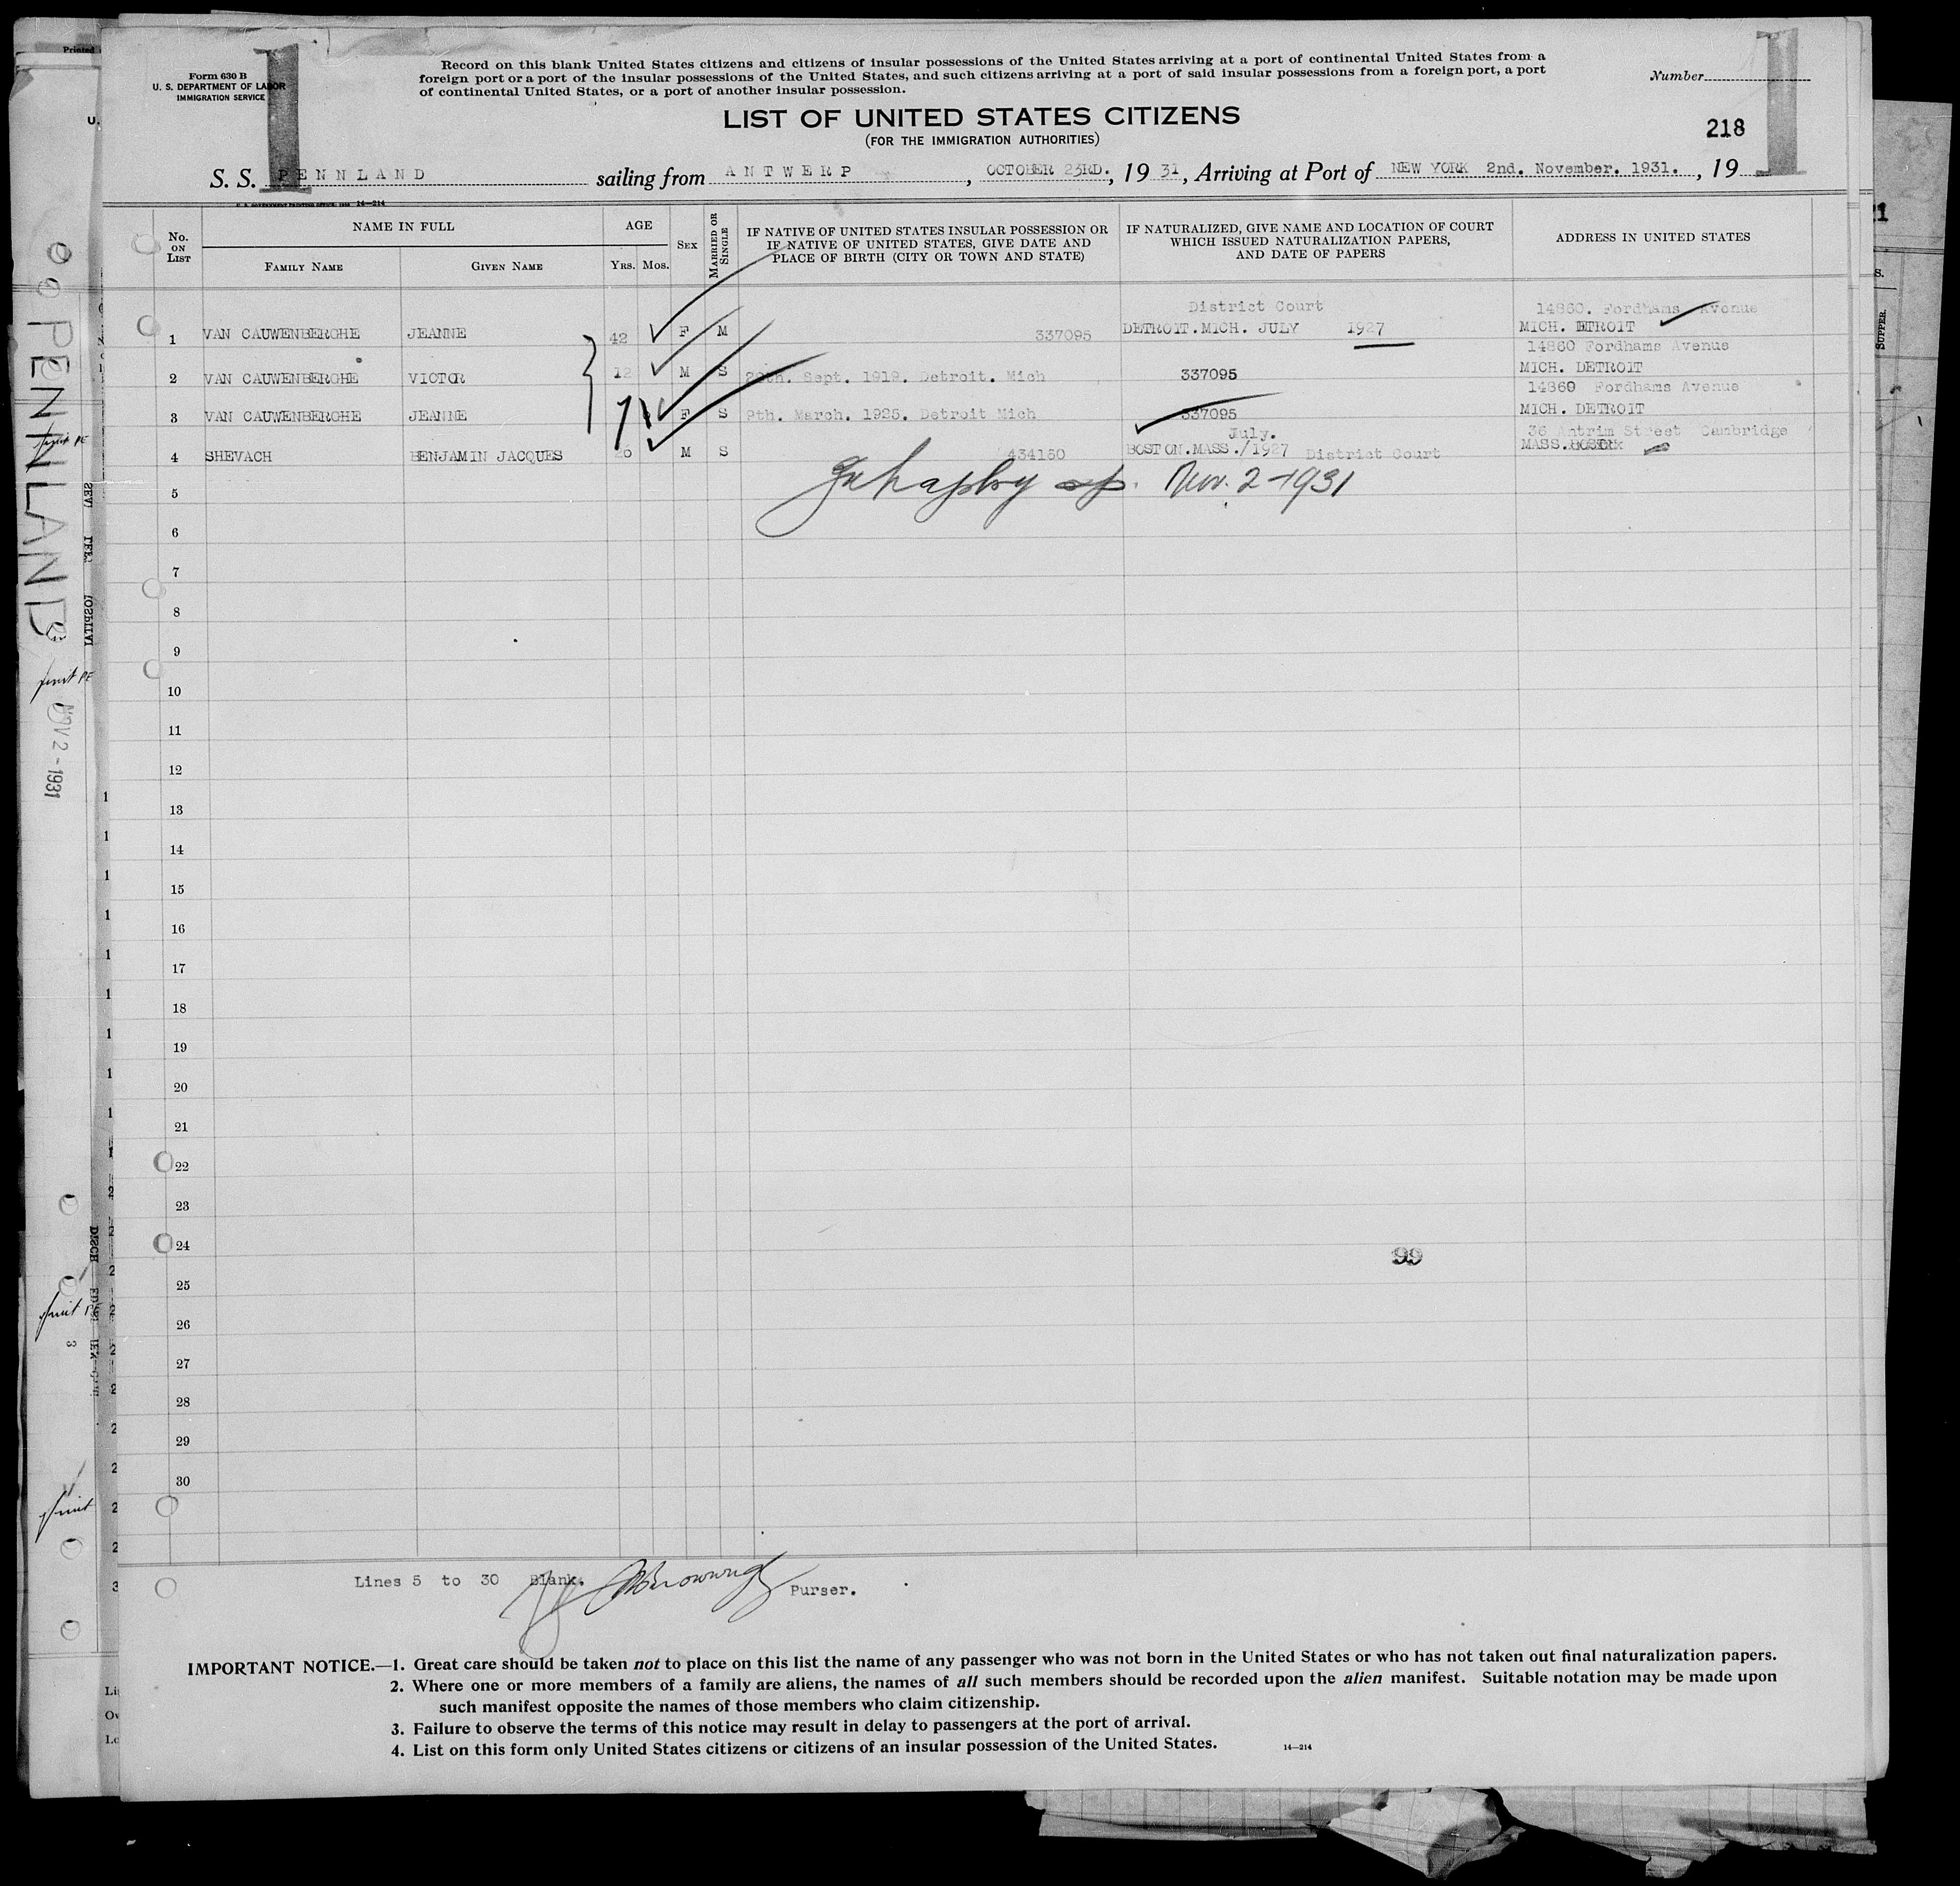 Form 630 B
U. S. DEPARTMENT OF LABOR
IMMIGRATION SERVICE
Record on this blank United States citizens and citizens of insular possessions of the United States arriving at a port of continental United States from a
foreign port or a port of the insular possessions of the United States, and such citizens arriving at a port of said insular possessions from a foreign port, a port
of continental United States, or a port of another insular possession.
Number
LIST OF UNITED STATES CITIZENS
(FOR THE IMMIGRATION AUTHORITIES)
218
S. S. PENNLAND sailing from ANTWERP, OCTOBER 23RD., 19 31, Arriving at Port of NEW YORK 2nd. November. 1931., 19
14—214
No. ON LIST
NAME IN FULL
FAMILY NAME
GIVEN NAME
AGE
YRS. MOS.
SEX
MARRIED OR SINGLE
IF NATIVE OF UNITED STATES INSULAR POSSESSION OR
IF NATIVE OF UNITED STATES, GIVE DATE AND
PLACE OF BIRTH (CITY OR TOWN AND STATE)
IF NATURALIZED, GIVE NAME AND LOCATION OF COURT
WHICH ISSUED NATURALIZATION PAPERS,
AND DATE OF PAPERS
ADDRESS IN UNITED STATES
District Court 14860. Fordhams Avenue
1 VAN CAUWENBERGHE JEANNE 42 F M 337095 DETROIT.MICH. JULY 1927 MICH. DETROIT
14860 Fordhams Avenue
2 VAN CAUWENBERGHE VICTOR 12 M S Sept. 1919. Detroit. Mich 337095 MICH. DETROIT
14860 Fordhams Avenue
3 VAN CAUWENBERGHE JEANNE F S 9th. March. 1925. Detroit Mich 337095 MICH. DETROIT
July. 36 Antrim Street Cambridge
4 SHEVACH BENJAMIN JACQUES 26 M S 434160 BOSTON.MASS./1927 District Court MASS.
Nov. 2-1931
5
6
7
8
9
10
11
12
13
14
15
16
17
18
19
20
21
22
23
24
99
25
26
27
28
29
30
Lines 5 to 30 Blank. Purser.
IMPORTANT NOTICE.—1. Great care should be taken not to place on this list the name of any passenger who was not born in the United States or who has not taken out final naturalization papers.
2. Where one or more members of a family are aliens, the names of all such members should be recorded upon the alien manifest. Suitable notation may be made upon
such manifest opposite the names of those members who claim citizenship.
3. Failure to observe the terms of this notice may result in delay to passengers at the port of arrival.
4. List on this form only United States citizens or citizens of an insular possession of the United States. 14—214
PENNLAND
NOV 2 - 1931